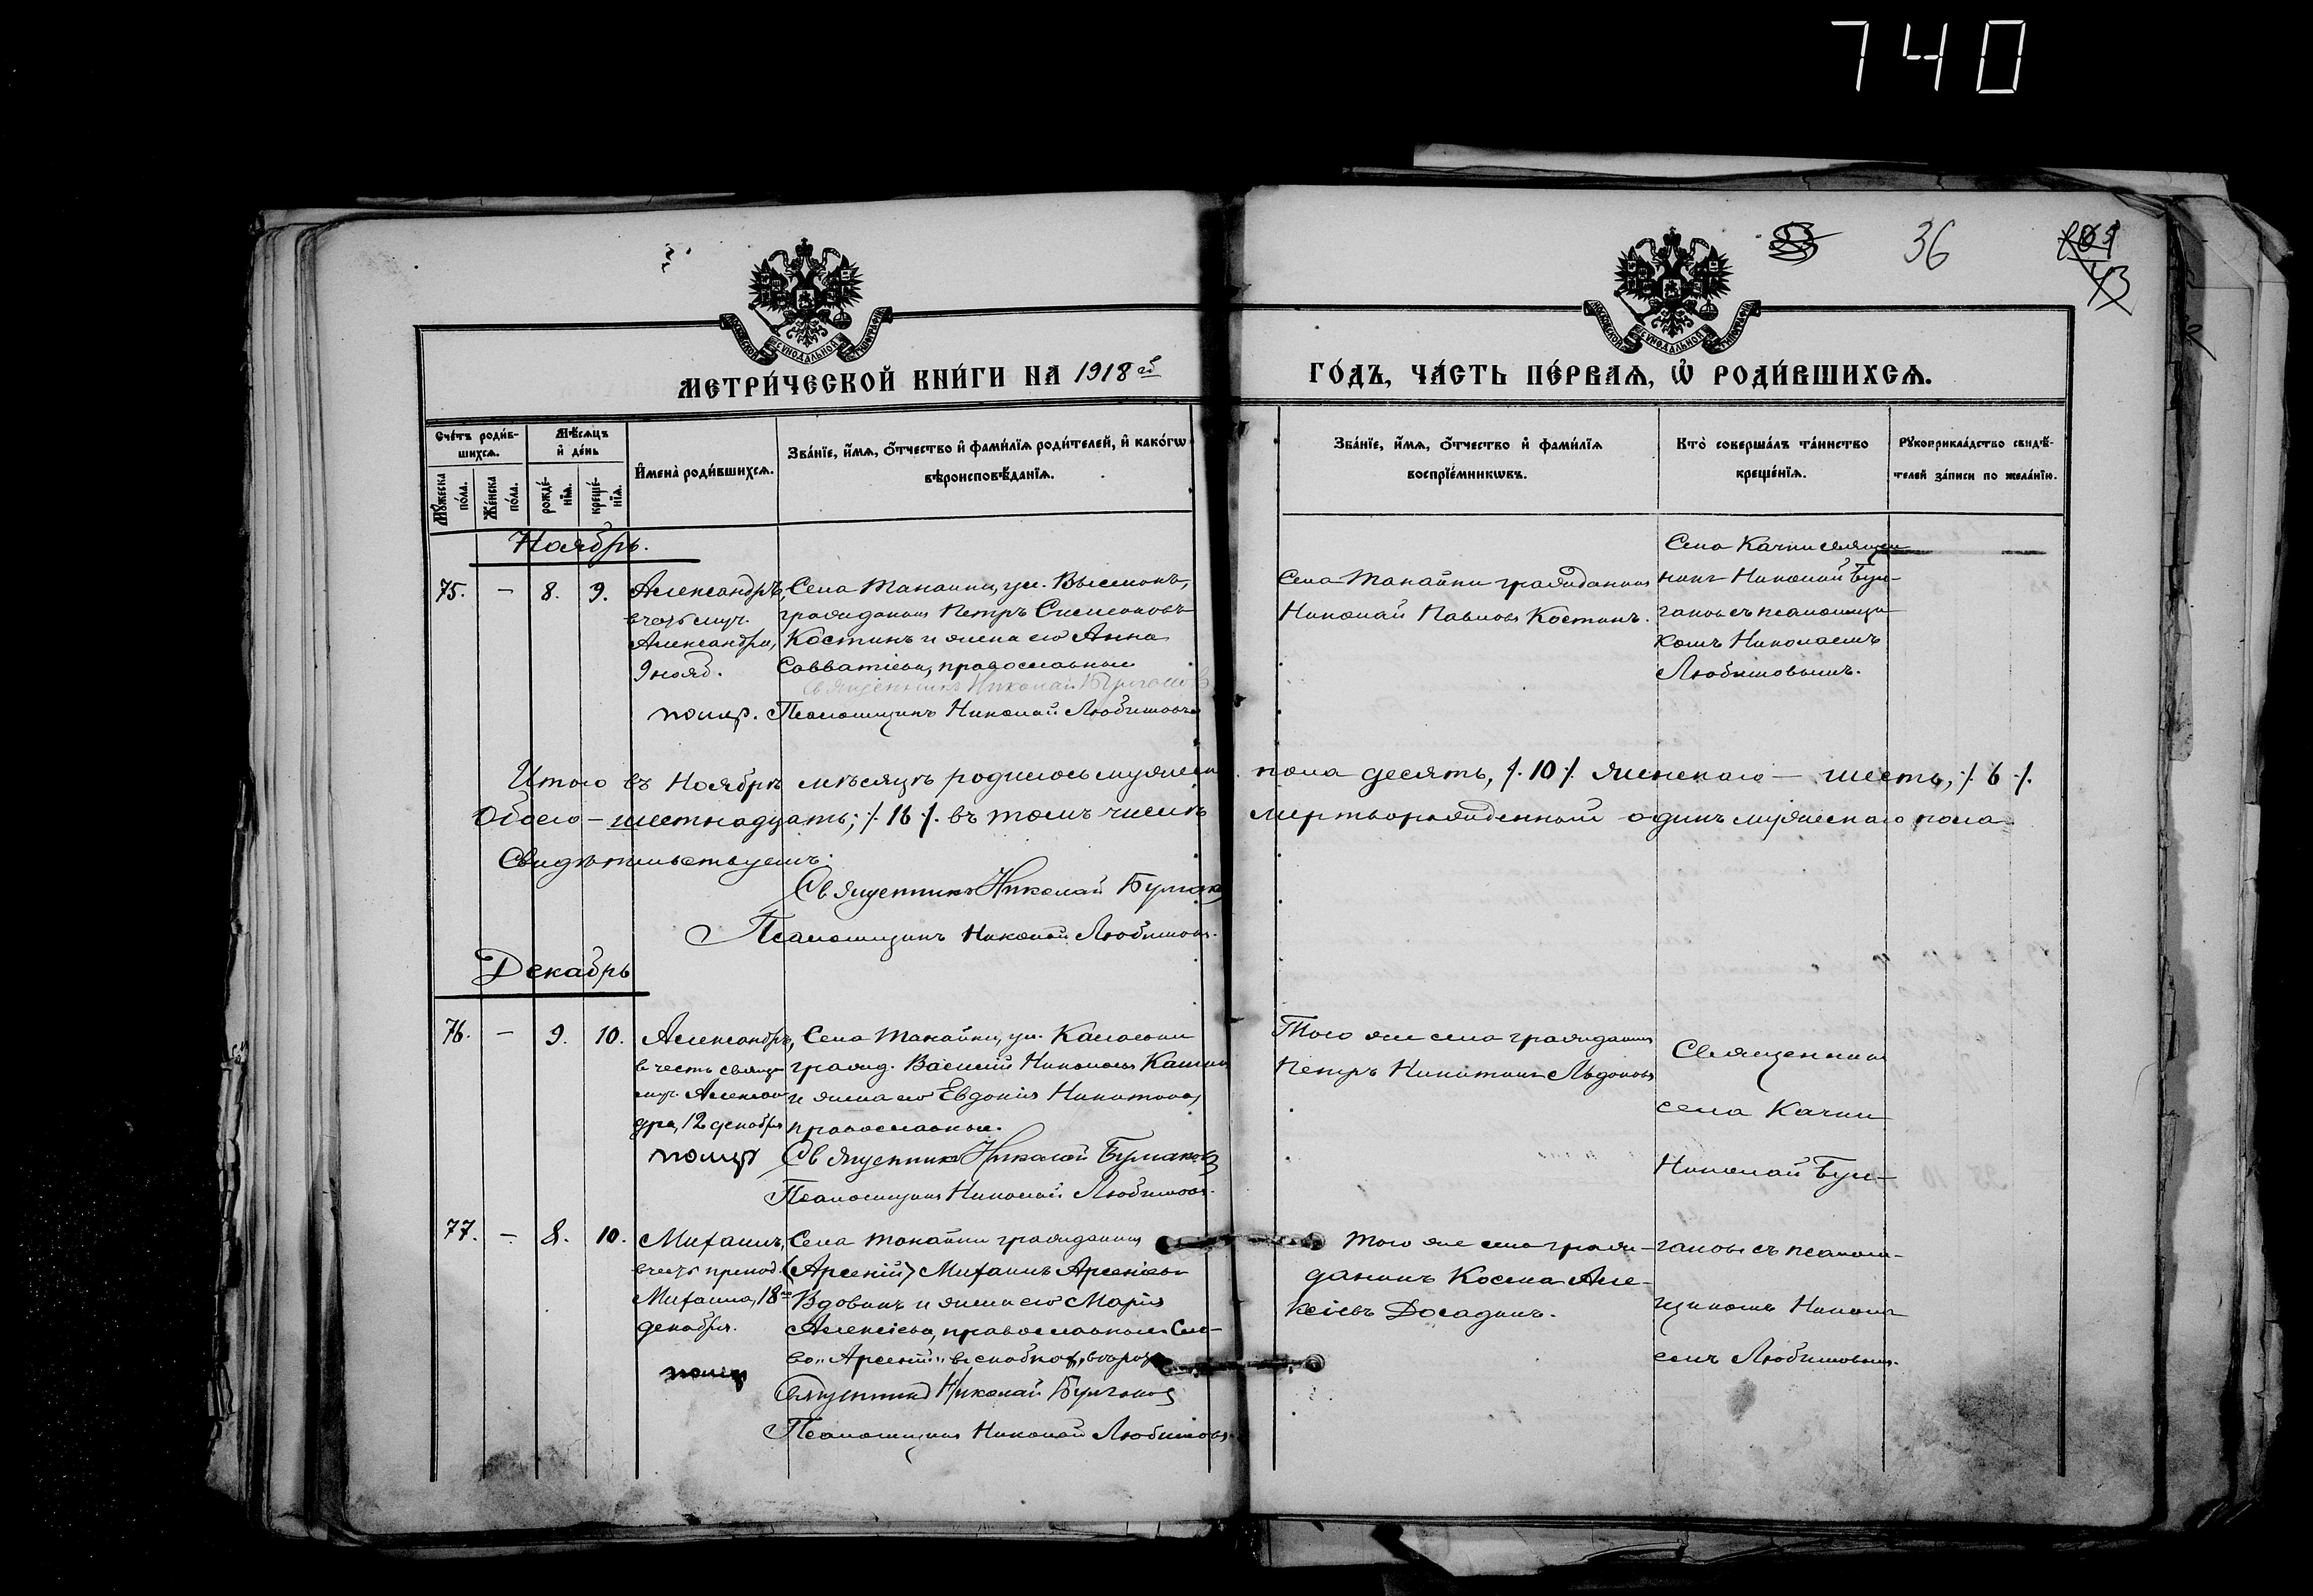 740
36
МЕТРИ́ЧЕСКОЙ КНИ́ГИ НА 1918 й
ГО́ДЪ, ЧА́СТЬ ПЕ́РВАѦ, Ѡ҆ РОДИ́ВШИХСѦ.
Сче́тъ роди́в-
шихсѧ.
Мѣ́сѧцъ
и҆ де́нь
Мꙋ́жеска
по́ла.
Же́нска
по́ла.
рожде́-
нїѧ.
креще́-
нїѧ.
И҆мена̀ роди́вшихсѧ.
Зва́нїе, и҆́мѧ, ѻ҆́тчество и҆ фами́лїѧ роди́телей, и҆ како́гѡ
вѣроисповѣ́данїѧ.
Зва́нїе, и҆́мѧ, ѻ҆́тчество и҆ фами́лїѧ
воспрїе́мникѡвъ.
Кто̀ соверша́лъ та́инство
креще́нїѧ.
Рꙋкоприкла́дство свидѣ́-
телей за́писи по жела́нїю.
Ноябрь.
75. — 8. 9.
Александръ,
въ честь муч.
Александра,
9 нояб.
помер.
Села Танайки, ул.
гражданинъ Петръ Симеоновъ
Костинъ и жена его Анна
Савватіева, православные
Священникъ Николай Булгаковъ
Псаломщикъ Николай Любимовъ
Села Танайки гражданинъ
Николай Павловъ Костинъ.
Села Качки священ
никъ Николай Бул-
гаковъ съ псаломщи
комъ Николаемъ
Любимовымъ.
Итого въ Ноябрѣ мѣсяцѣ родилось мужеск. пола десять, /. 10 /. женскаго — шесть, /. 6 /.
Обоего — шестнадцать; /. 16 /. въ томъ числѣ мертворожденный одинъ мужескаго пола.
Свидѣтельствуемъ:
Священникъ Николай Булгаков
Псаломщикъ Николай Любимовъ.
Декабрь
76. — 9. 10.
Александръ,
въ честь свящ
муч. Александ
дра, 12 декабря
помер
Села Танайки, ул.
гражд. Василій Николаевъ
и жена его Евдокія Никитина,
православные.
Священникъ Николай Булгаковъ
Псаломщикъ Николай Любимовъ.
Того же села гражданинъ
Петръ Никитинъ
Священникъ
села Качки
Николай Бул-
77. — 8. 10.
Михаилъ,
въ честь препод.
Михаила, 18го
декабря.
помер
Села Танайки гражданинъ
(Арсеній) Михаилъ Арсеніевъ
Вдовинъ и жена его Марія
Алексіева, православные. Сло-
во „Арсеній" въ скобкахъ,
Священникъ Николай Булгаковъ
Псаломщикъ Николай Любимовъ.
Того же села граж-
данинъ Косма Але-
ксіевъ Досадинъ.
гаковъ съ псалом-
щикомъ Никола
емъ Любимовымъ.